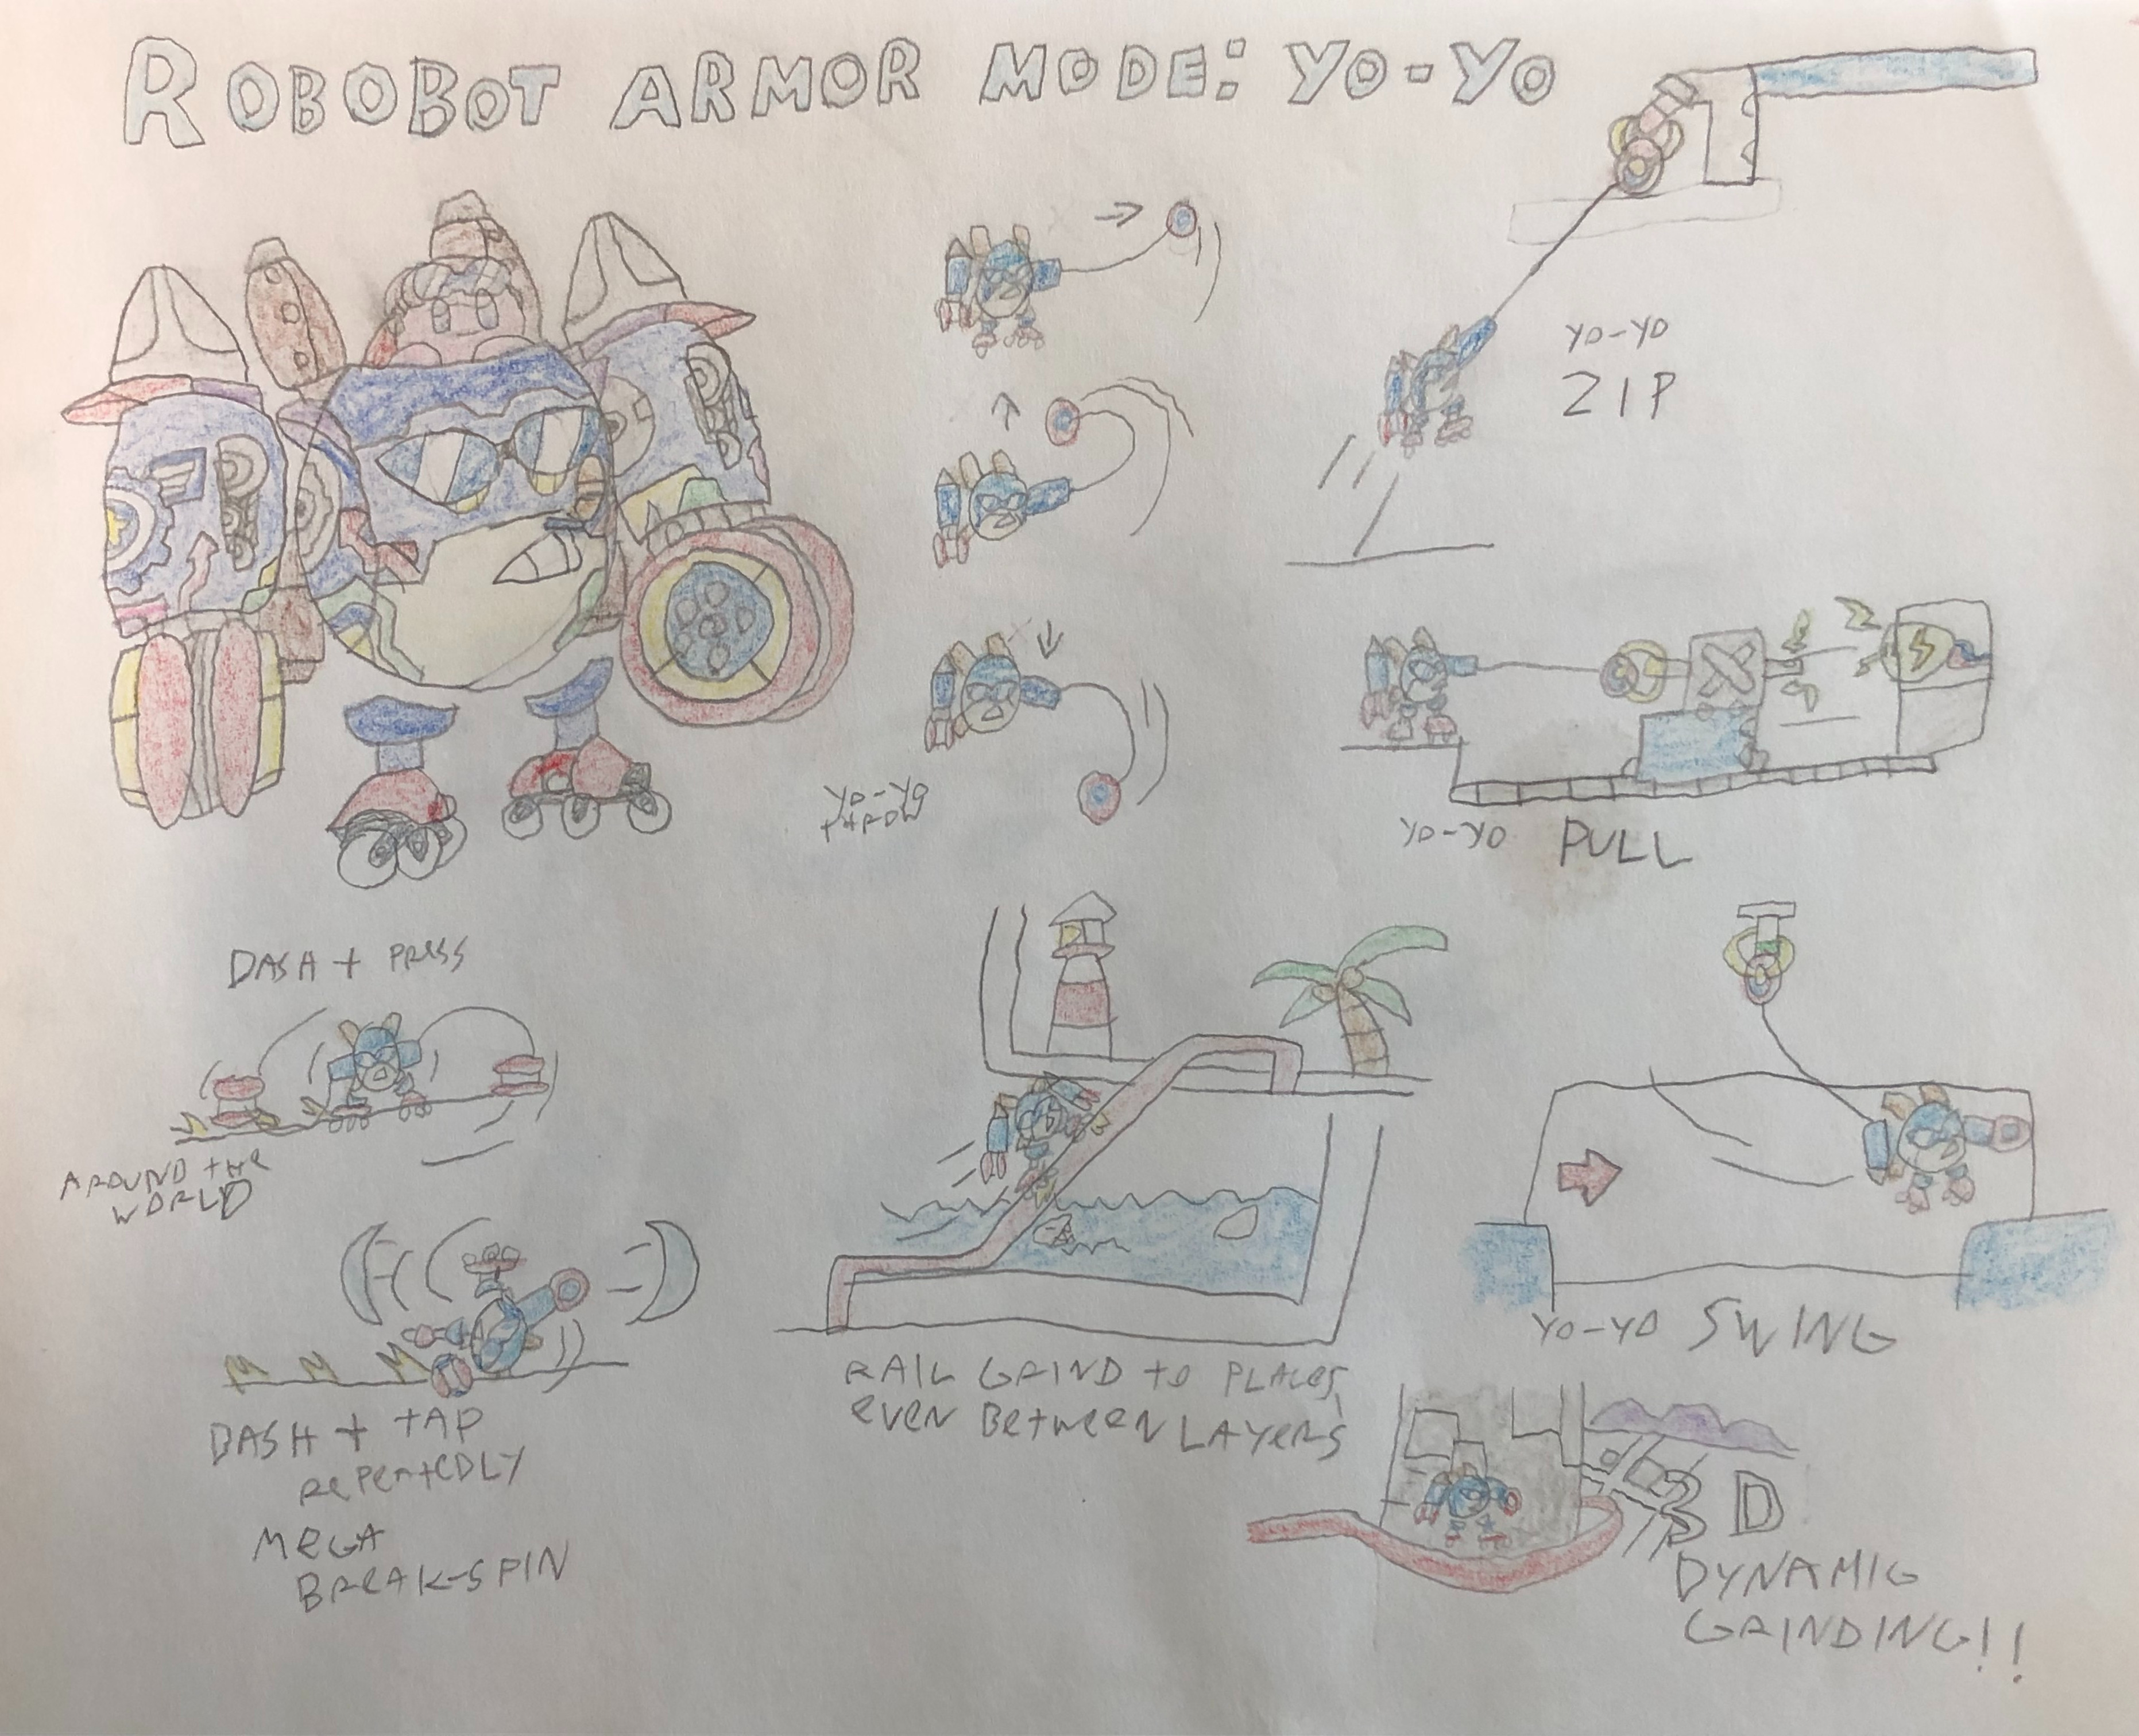 ROBOBOT ARMOR MODE: YO-YO
YO-YO
THROW
YO-YO
ZIP
YO-YO PULL
DASH + PRESS
AROUND THE
WORLD
DASH + TAP
REPEATEDLY
MEGA
BREAK-SPIN
RAIL GRIND TO PLACES,
EVEN BETWEEN LAYERS
YO-YO SWING
3D
DYNAMIC
GRINDING!!